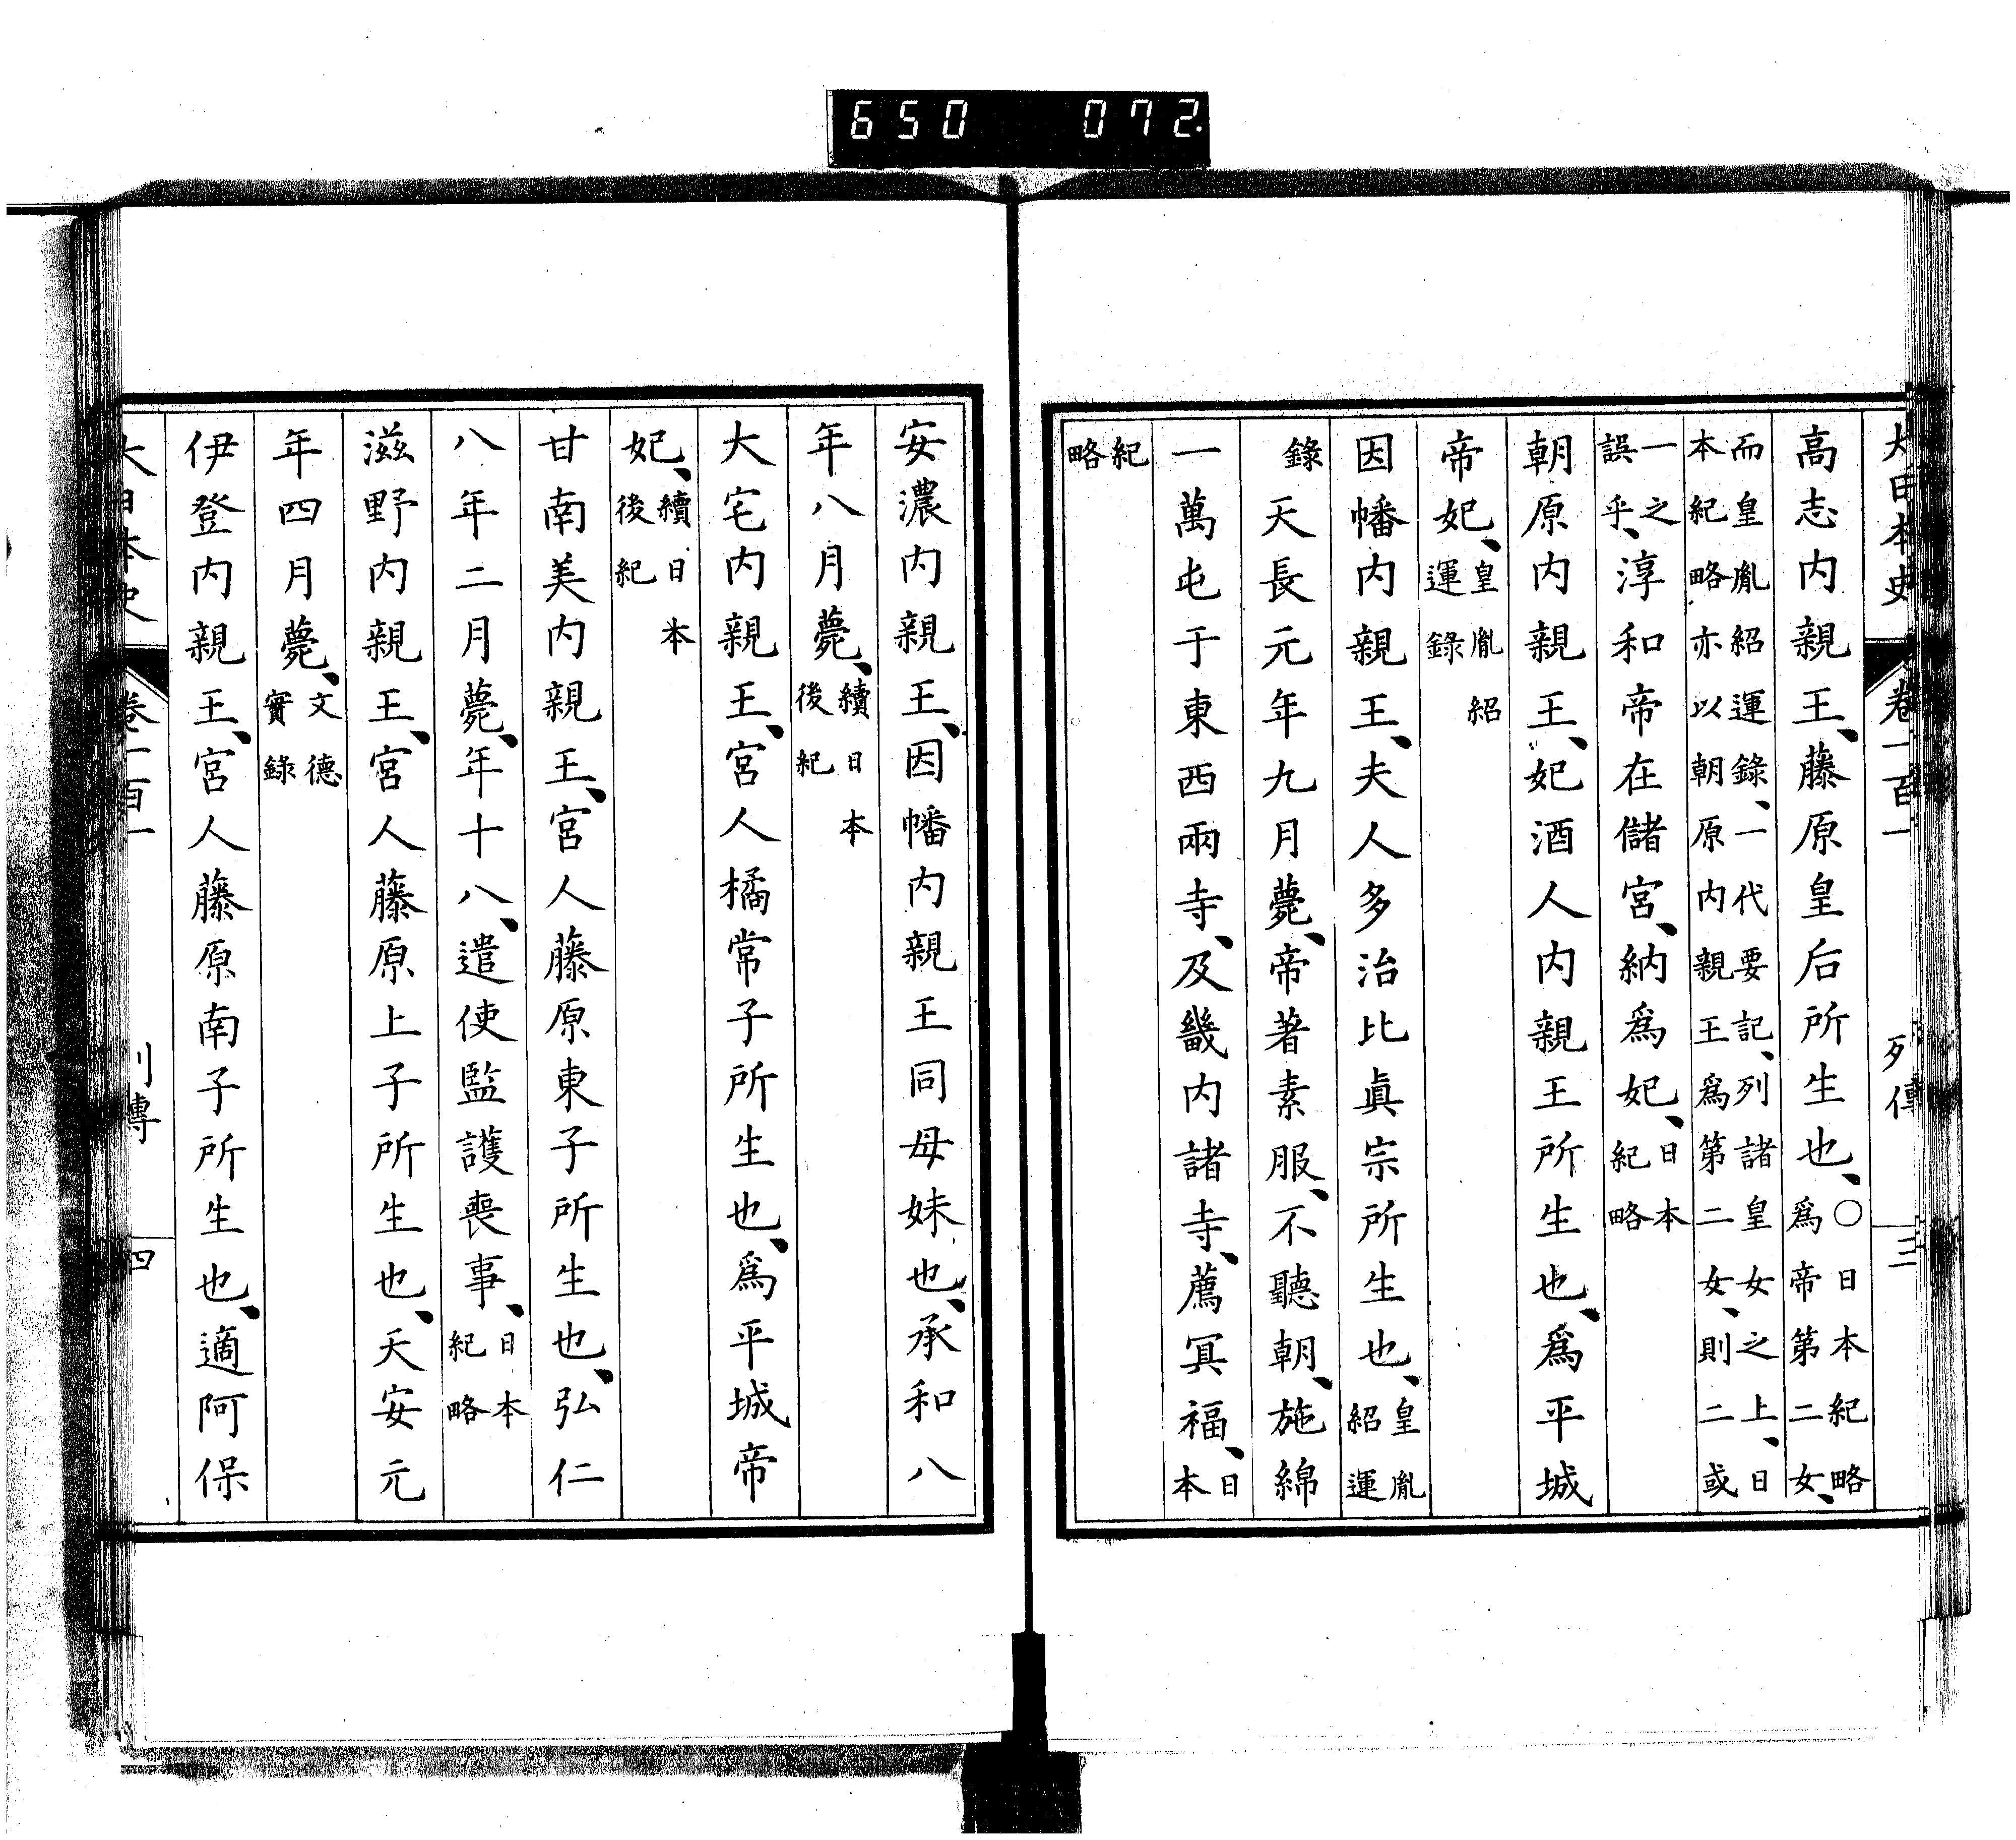 650 072
大日本史 卷一百一 列傳 三
高志内親王、藤原皇后所生也、○日本紀略爲帝第二女、
而皇胤紹運錄、一代要記、列諸皇女之上、日本紀略亦以朝原内親王爲第二女、則二或
一之誤乎、淳和帝在儲宮、納爲妃、日本紀略
朝原内親王、妃酒人内親王所生也、爲平城
帝妃、皇胤紹運錄
因幡内親王、夫人多治比眞宗所生也、皇胤紹運
錄天長元年九月薨、帝著素服、不聽朝、施綿
一萬屯于東西兩寺、及畿内諸寺、薦冥福、日本
紀略
安濃内親王、因幡内親王同母妹也、承和八
年八月薨、續日本後紀
大宅内親王、宮人橘常子所生也、爲平城帝
妃、續日本後紀
甘南美内親王、宮人藤原東子所生也、弘仁
八年二月薨、年十八、遣使監護喪事、日本紀略
滋野内親王、宮人藤原上子所生也、天安元
年四月薨、文德實錄
伊登内親王、宮人藤原南子所生也、適阿保
大日本史 卷一百一 列傳 四